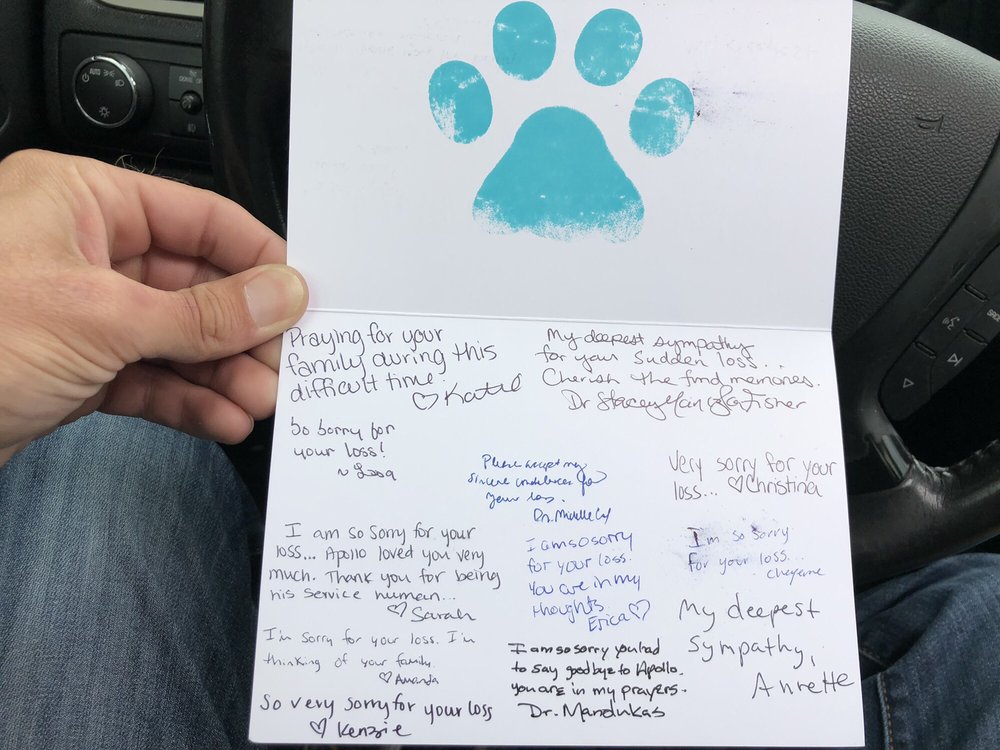 AUTO
Praying for your
family during this
difficult time.
♡ Katie
My deepest sympathy
for your Sudden loss...
Cherish the fond memories.
Dr Stacey Fisher
So sorry for
your loss!
~ Lisa
Please accept my
sincere condolences for
your loss.
Dr. Michelle
Very sorry for your
loss... ♡ Christina
I am so sorry for your
loss... Apollo loved you very
much. Thank you for being
his service human...
♡ Sarah
I am so sorry
for your loss.
You are in my
thoughts
Erica ♡
I'm so sorry
for your loss...
Cheyenne
I'm sorry for your loss. I'm
thinking of your family.
♡ Amanda
I am so sorry you had
to say goodbye to Apollo.
you are in my prayers.
Dr. Mandukas
My deepest
sympathy,
Annette
So very sorry for your loss
♡ Kenzie